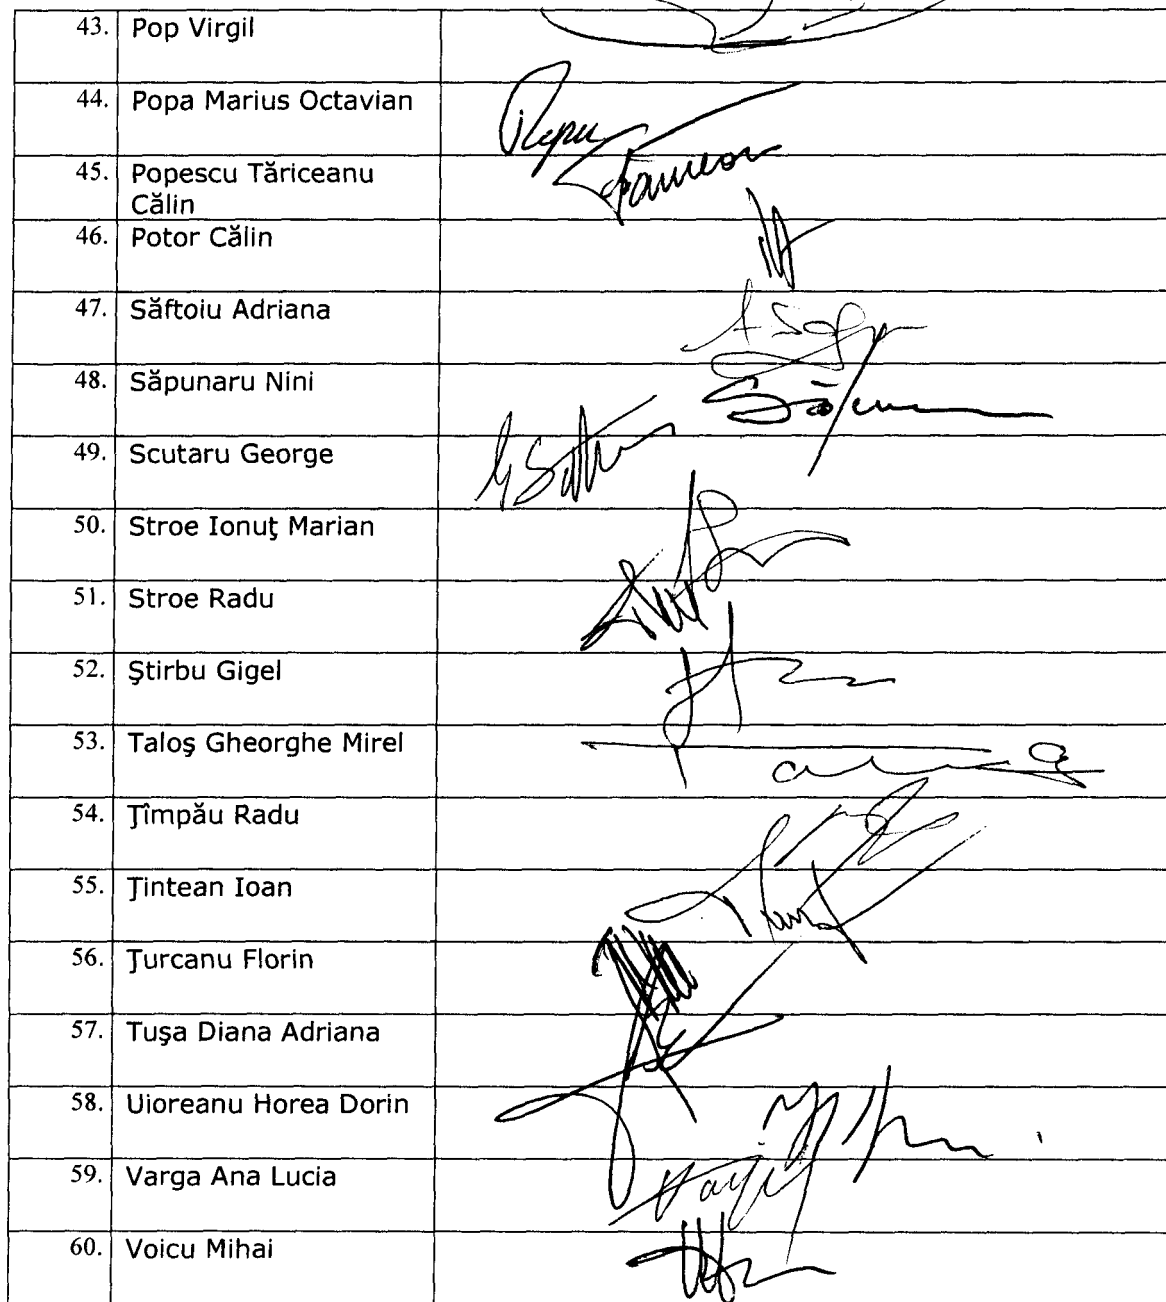 43. Pop Virgil
44. Popa Marius Octavian
45. Popescu Tăriceanu
Călin
46. Potor Călin
47. Săftoiu Adriana
48. Săpunaru Nini
49. Scutaru George
50. Stroe Ionuţ Marian
51. Stroe Radu
52. Ştirbu Gigel
53. Taloş Gheorghe Mirel
54. Ţîmpău Radu
55. Ţintean Ioan
56. Ţurcanu Florin
57. Tuşa Diana Adriana
58. Uioreanu Horea Dorin
59. Varga Ana Lucia
60. Voicu Mihai